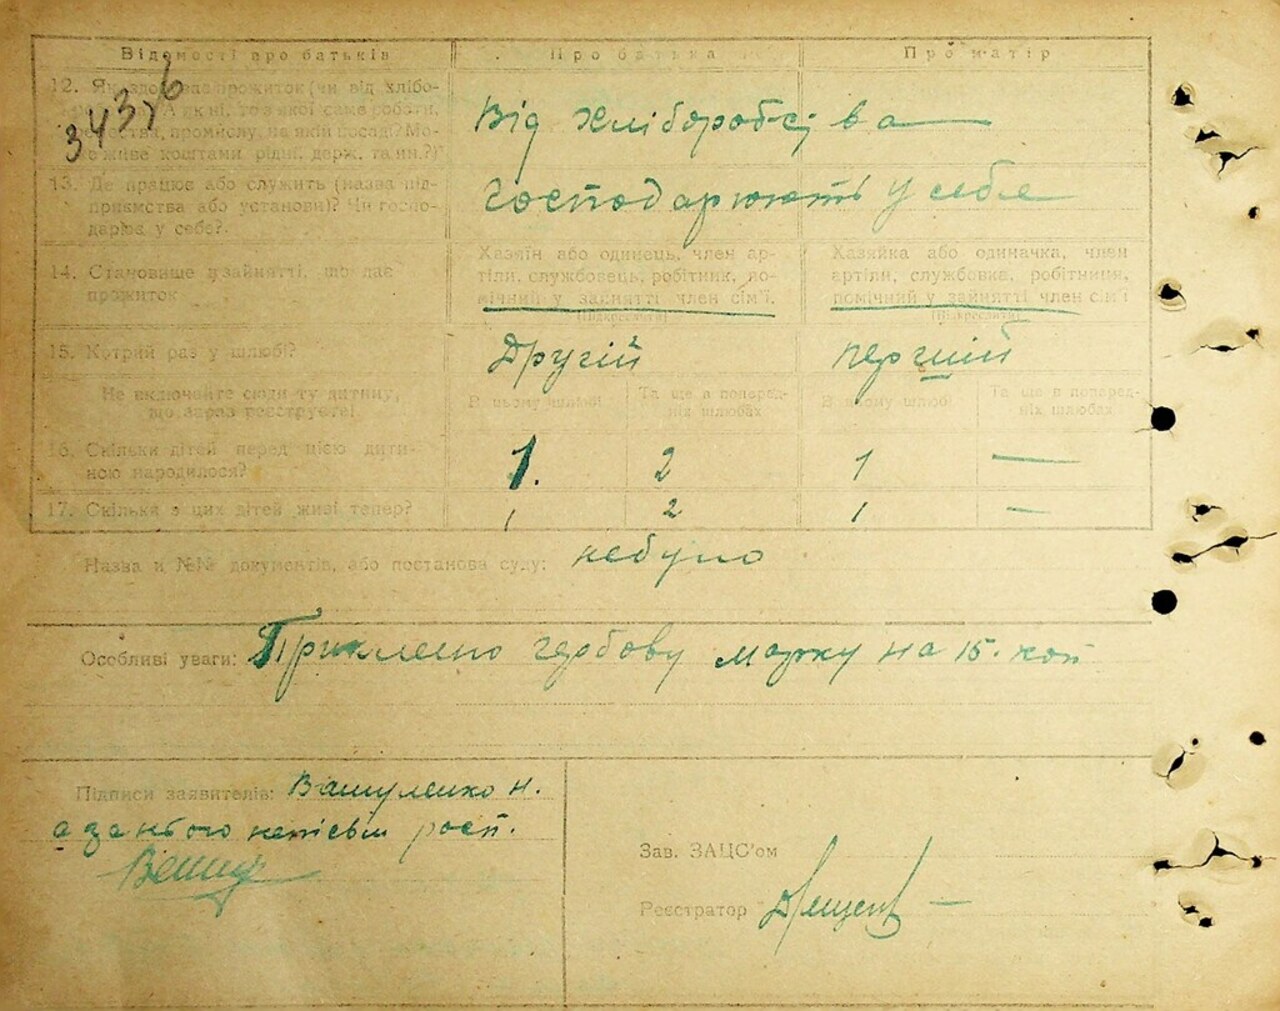 Відомості про батьків Про батька Про матір
3 4 3, 6
12. Як здобував прожиток (чи від хлібо-
Від Хліборобства
13. Де працює або служить (назва під-
приємства або установи)? Чи госпо-
дарює у себе?
господарюють у себе
14. Становище у зайнятті, що дає
прожиток
Хазяїн або одинець, член ар-
тіли, службовець, робітник, по-
мічний у зайнятті член сім'ї.
(Підкреслити)
Хазяйка або одиначка, член
артіли, службовка, робітниця,
помічний у зайнятті член сім'ї
(Підкреслити)
15. Котрий раз у шлюбі? Другій перший
Не включайте сюди ту дитину,
що зараз реєструєте!
В цьому шлюбі
Та ще в поперед-
ніх шлюбах
В цьому шлюбі
Та ще в поперед-
ніх шлюбах
16. Скільки дітей перед цією дити-
ною народилося? 1. 2 1 —
17. Скільки з цих дітей живі тепер? 1 2 1 —
Назва й №№ документів, або постанова суду: небуло
Особливі уваги: Приклеено гербову марку на 15. коп
Підписи заявителів: Вашуленко Н.
а за нього непісьм росп.
Зав. ЗАЦС'ом
Реєстратор